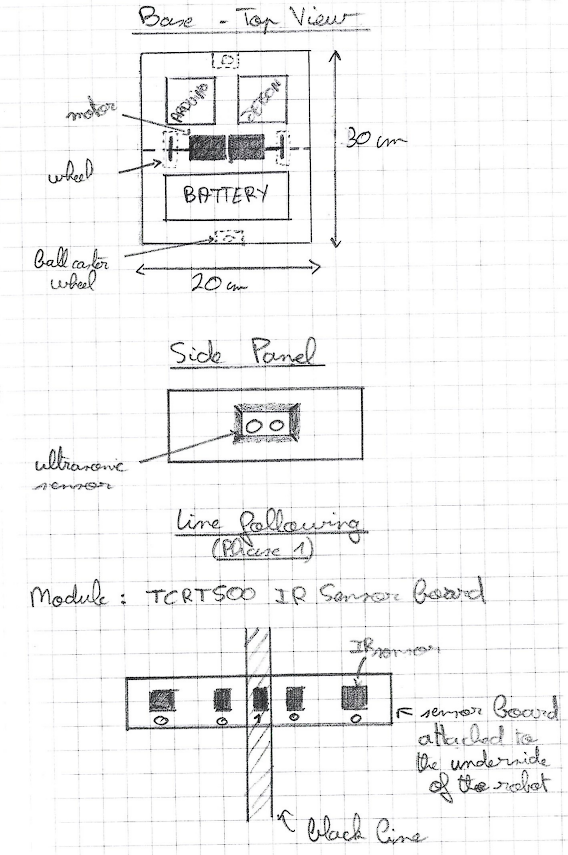 Base - Top View
ARDUINO
JETSON
motor
30 cm
wheel
BATTERY
Ball caster
wheel
20 cm
Side Panel
ultrasonic
sensor
Line following
(Phase 1)
Module: TCRT500 IR Sensor Board
IR sensor
0 0 1 0 0
sensor board
attached to
the underside
of the robot
black line